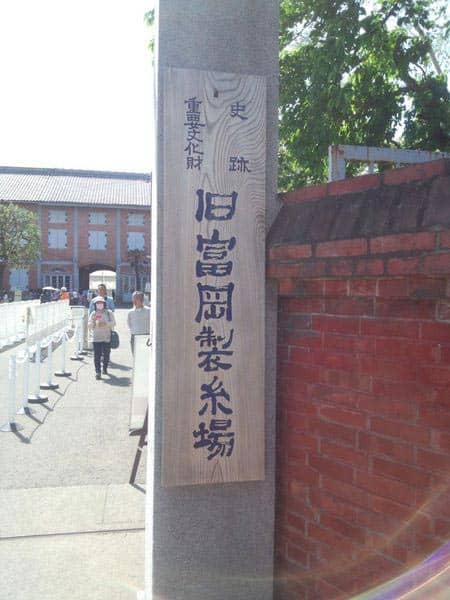 史跡
重要文化財
旧富岡製糸場